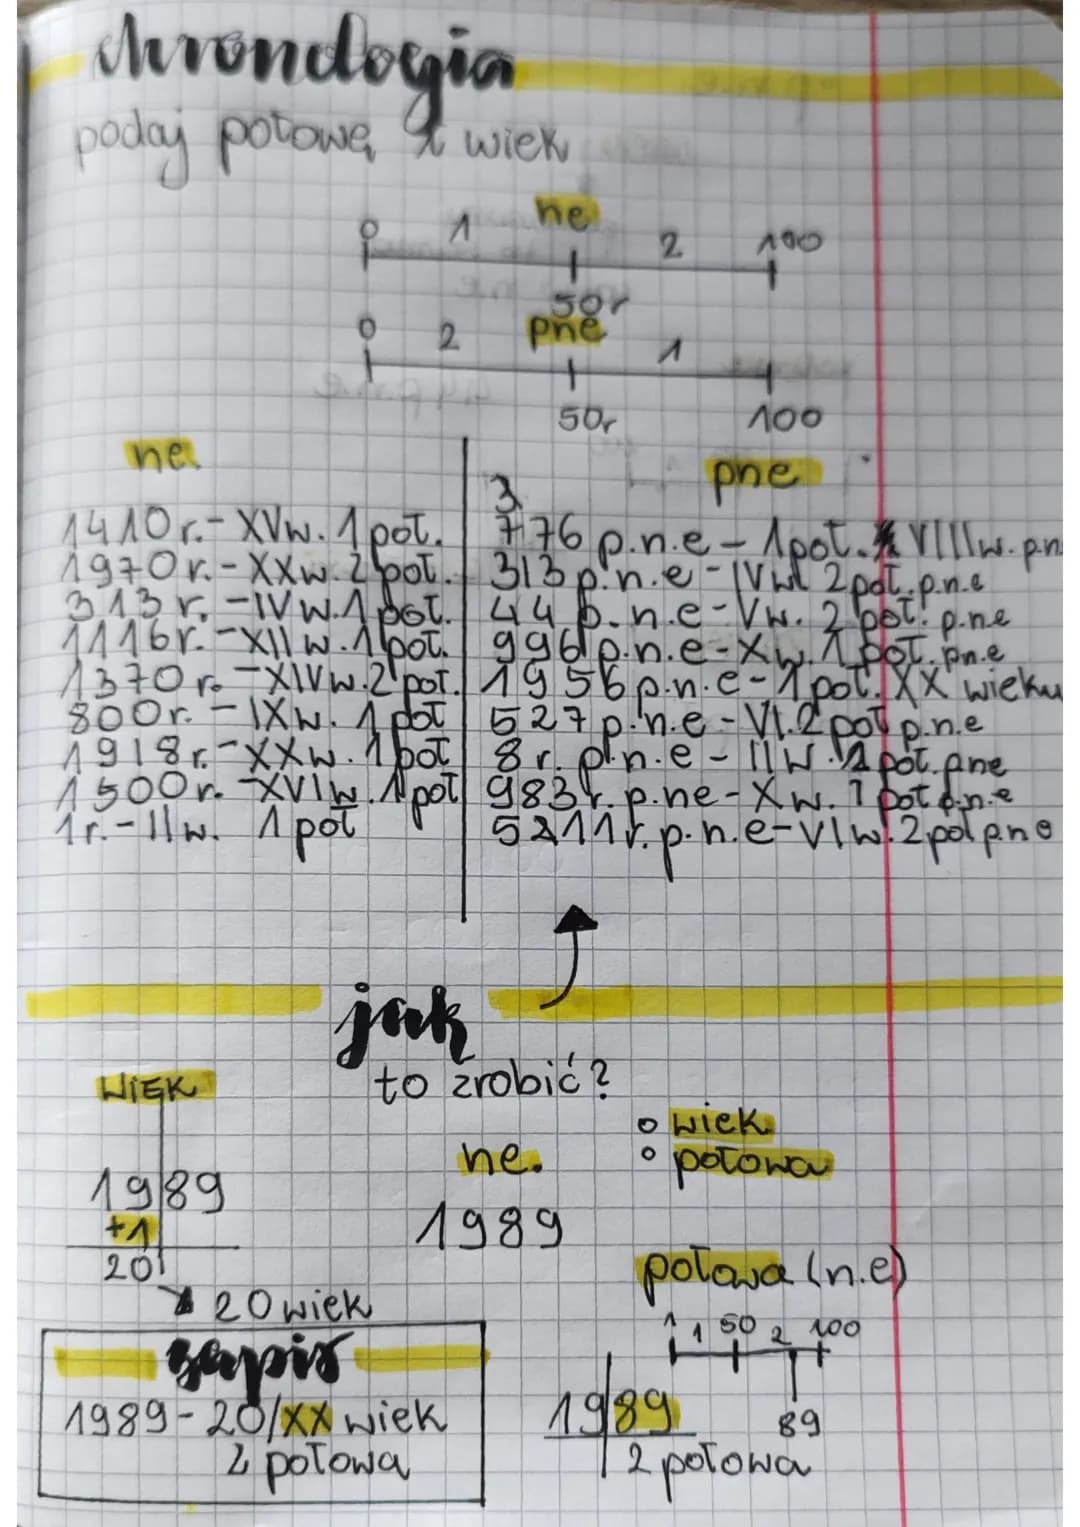 chronologia
podaj połowę i wiek
ne
0 1 2 100
50r
pne
0 2 1
50r 100
ne.
1410 r. - XVw. 1 poł.
1970 r. - XXw. 2 poł.
313 r. - IV w. 1 poł.
1116 r. - XII w. 1 poł.
1370 r. - XIV w. 2 poł.
800 r. - IX w. 1 poł
1918 r. - XXw. 1 poł
1500 r. - XVI w. 1 poł
1 r. - II w. 1 poł
pne
3
776 p.n.e - 1 poł. VIII w. p.n
313 p.n.e - IV w 2 poł. p.n.e
44 p.n.e - Vw. 2 poł. p.n.e
996 p.n.e - Xw. 1 poł. pn.e
1956 p.n.e - 1 poł. XX wieku
527 p.n.e - VI. 2 poł p.n.e
8 r. p.n.e - II W. poł. pne
983 r. p.ne - Xw. 1 poł p.n.e
5211 r. p.n.e - VI w. 2 poł p.n.e
jak
to zrobić?
WIEK
1989
+1
20
20 wiek
ne.
1989
wiek
połowa
połowa (n.e)
1 1 50 2 100
89
1989
2 połowa
zapis
1989 - 20/XX wiek
2 połowa